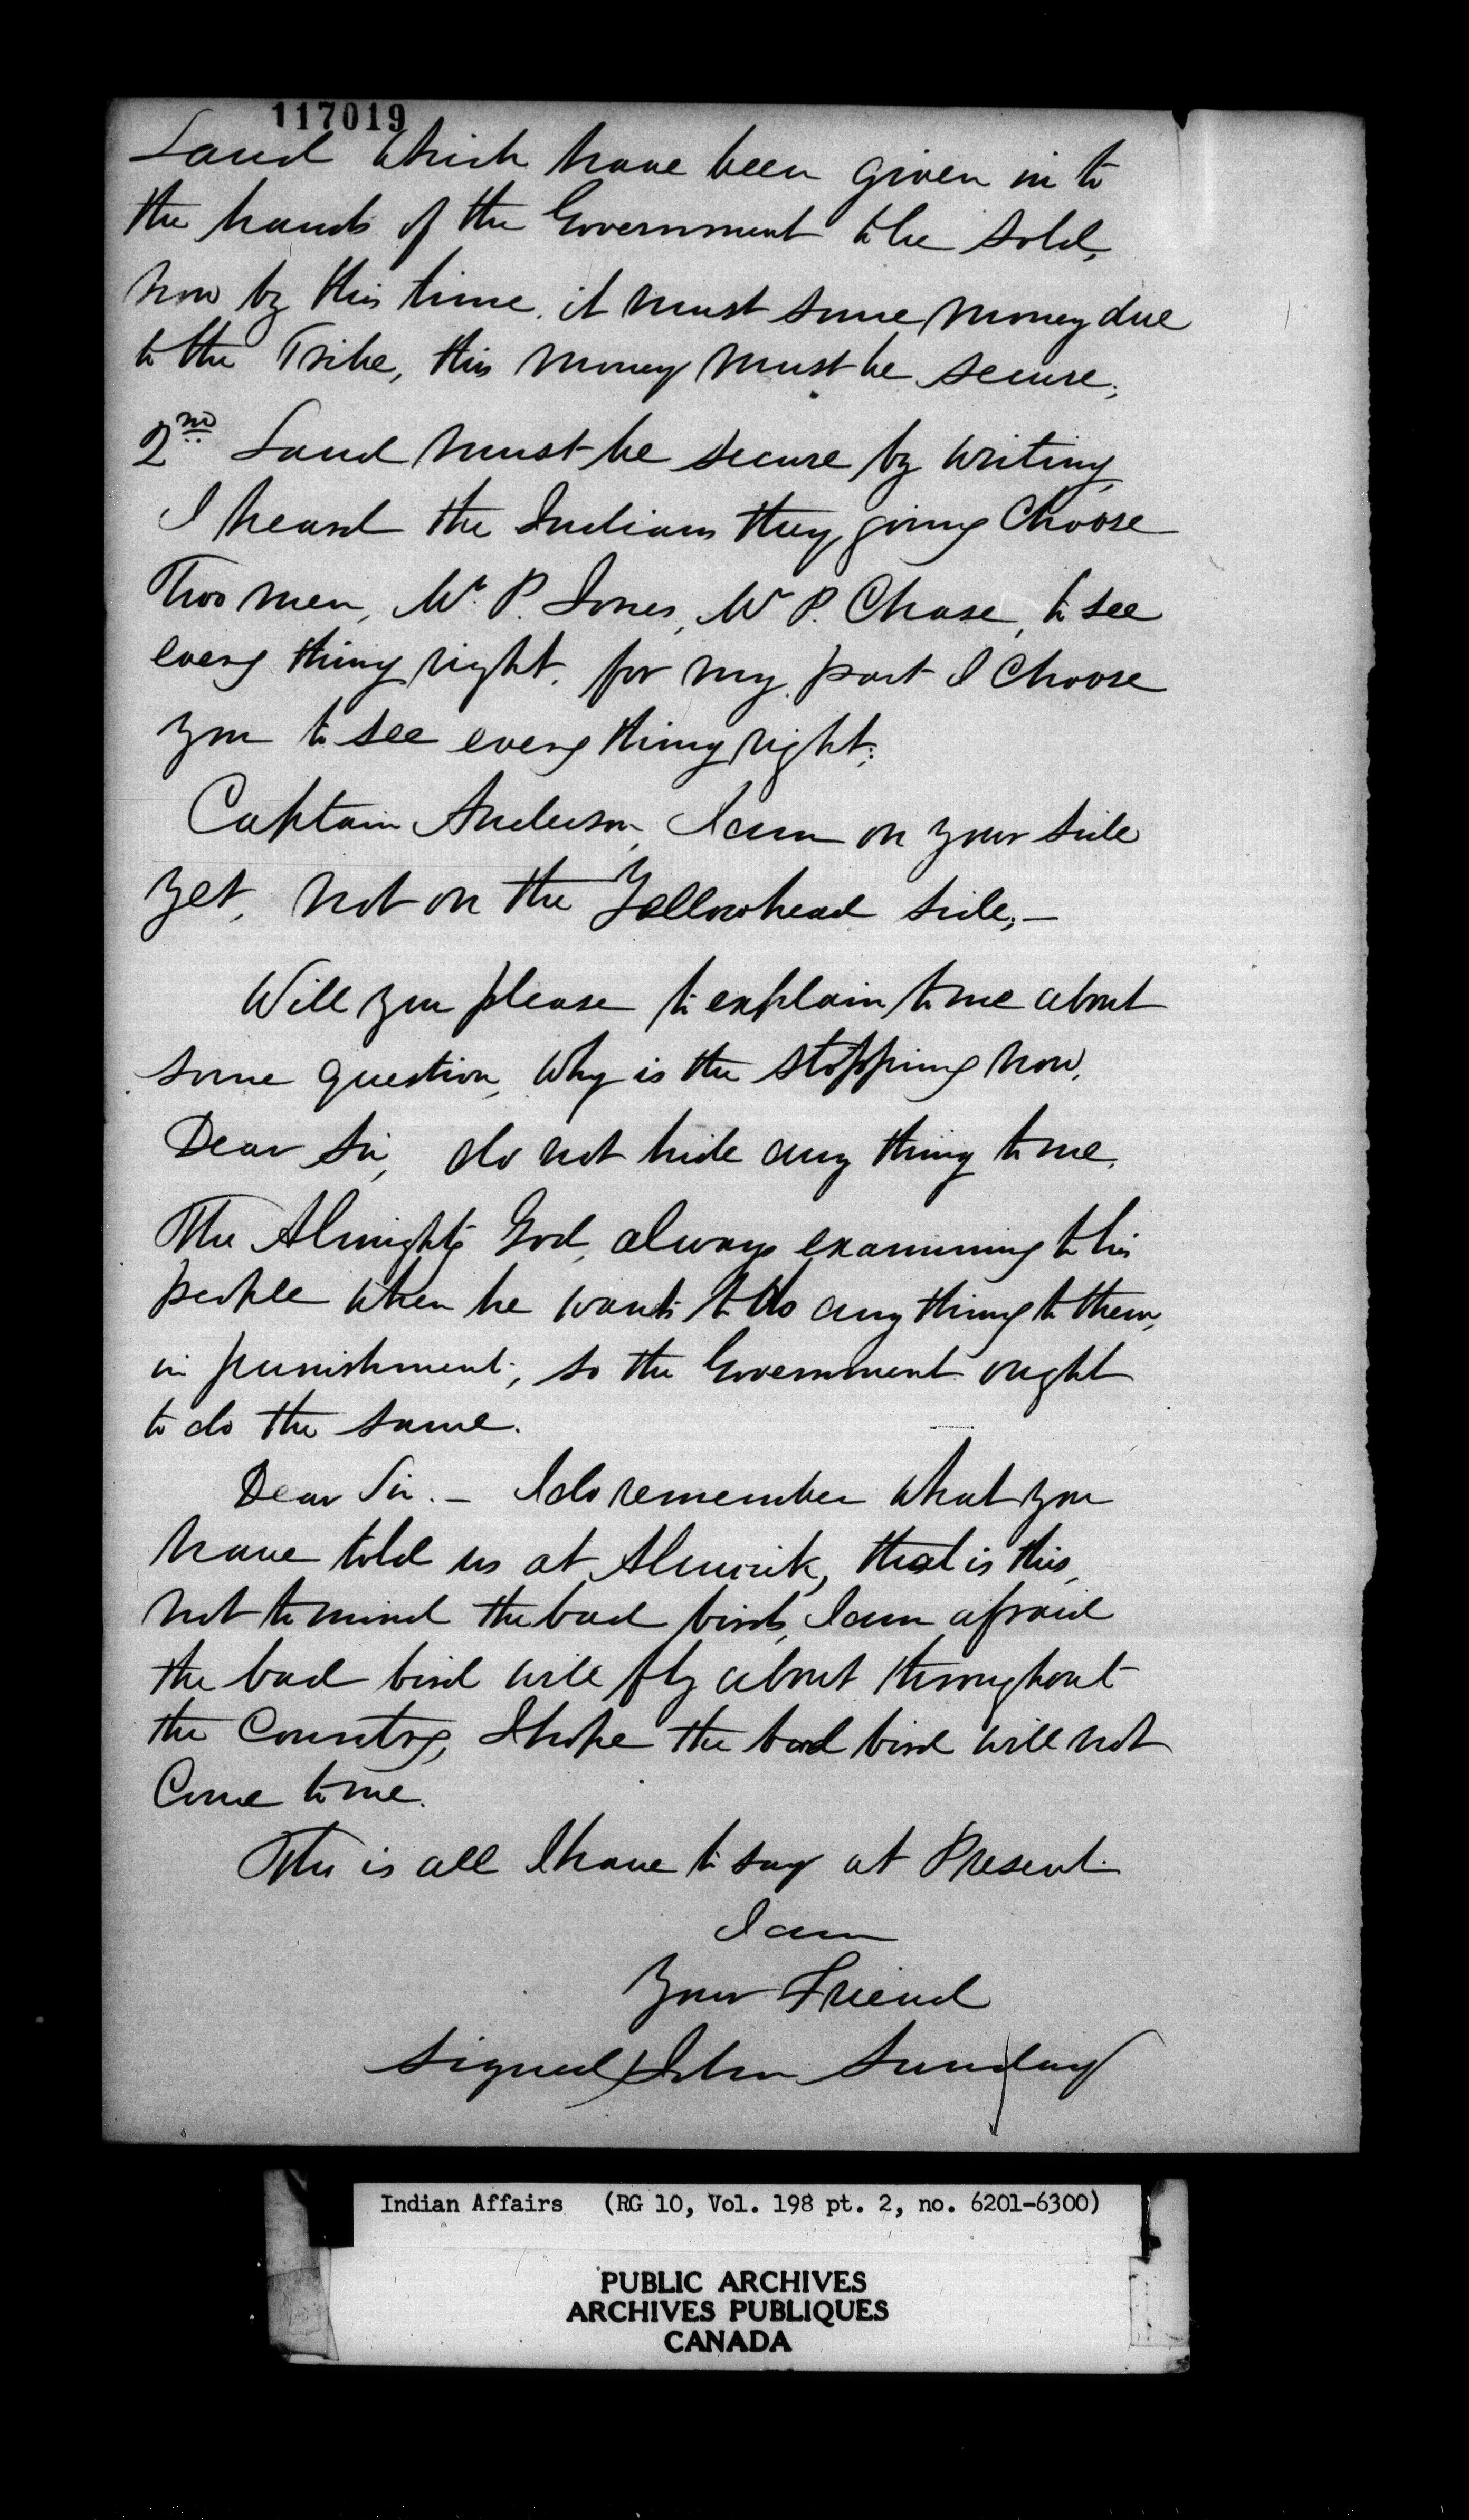 117019
Land which have been given in to
the hands of the Government to be sold,
now by this time, it must some money due
to the Tribe, this money must be secure;
2nd Land must be secure by writing,
I heard the Indians they going Choose
Two men, Mr. P. Jones, Mr P. Chase, to see
every thing right. for my part I Choose
you to see every thing right;
Captain Anderson, I am on your side
yet, not on the Yellowhead side;—
Will you please to explain to me about
some question, Why is the stopping now,
Dear Sir, do not hide any thing to me.
The Almighty God, always examining to his
people when he wants to do any thing to them,
in punishment; so the Government ought
to do the same.
Dear Sir. — I do remember what you
have told us at Alnwick, that is this,
not to mind the bad birds, I am afraid
the bad bird will fly about throughout
the Country, I hope the bad bird will not
Come to me.
This is all I have to say at Present.
I am
Your Friend
Signed) John Sunday
Indian Affairs (RG 10, Vol. 198 pt. 2, no. 6201-6300)
PUBLIC ARCHIVES
ARCHIVES PUBLIQUES
CANADA